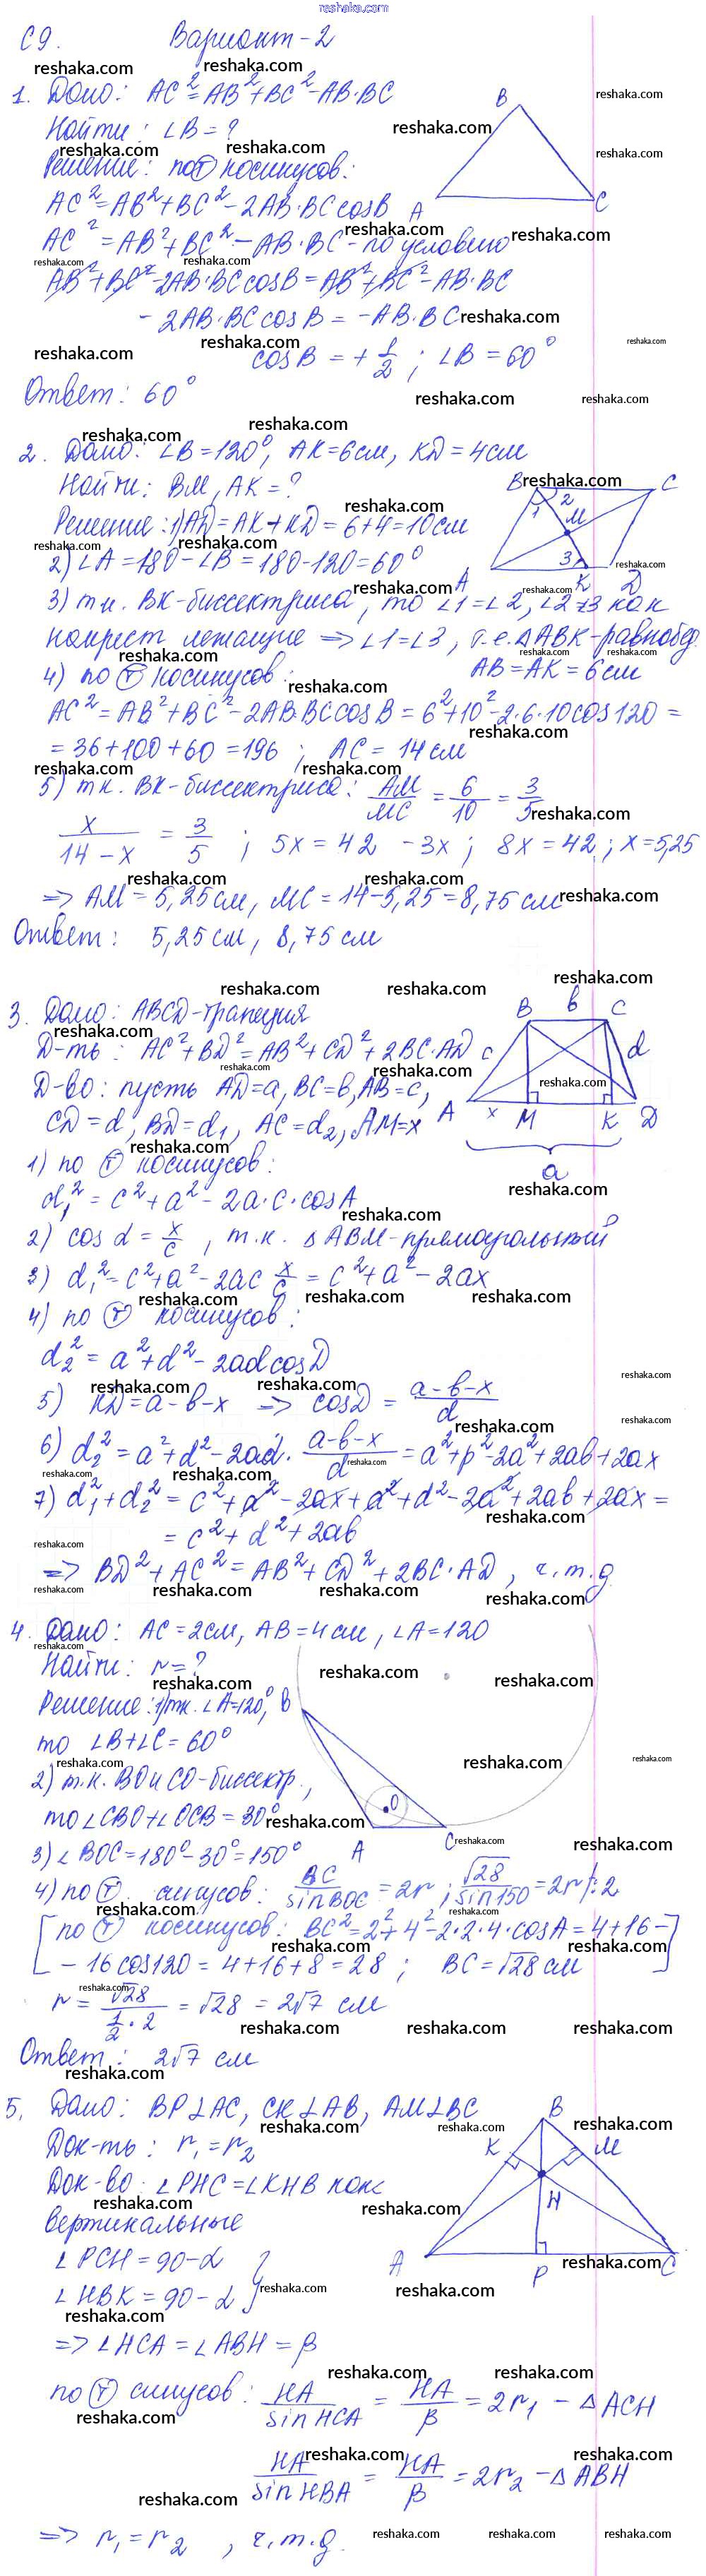 reshaka.com
С9. Вариант-2
1. Дано: AC²=AB²+BC²-AB·BC
Найти: ∠B=?
Решение: по Ⓣ косинусов:
AC²=AB²+BC²-2AB·BC cosB
AC²=AB²+BC²-AB·BC-по условию
AB²+BC²-2AB·BC cosB=AB²+BC²-AB·BC
-2AB·BC cosB=-AB·BC
cosB=+1/2; ∠B=60°
Ответ: 60°
B
A
C
2. Дано: ∠B=120°, AK=6см, KD=4см
Найти: BM, AK=?
Решение: 1) AD=AK+KD=6+4=10см
2) ∠A=180-∠B=180-120=60°
3) т.к. BK-биссектриса, то ∠1=∠2, ∠2=∠3 как
накрест лежащие => ∠1=∠3, т.е. ΔABK-равнобед.
AB=AK=6см
4) по Ⓣ косинусов:
AC²=AB²+BC²-2AB·BC cosB=6²+10²-2·6·10cos120=
=36+100+60=196; AC=14см
5) т.к. BK-биссектриса: AM/MC=6/10=3/5
x/(14-x)=3/5; 5x=42-3x; 8x=42; x=5,25
=> AM=5,25см, MC=14-5,25=8,75см
Ответ: 5,25см, 8,75см
B
C
1
2
M
3
A
K
D
3. Дано: ABCD-трапеция
Д-ть: AC²+BD²=AB²+CD²+2BC·AD
Д-во: пусть AD=a, BC=b, AB=c,
CD=d, BD=d₁, AC=d₂, AM=x
1) по Ⓣ косинусов:
d₁²=c²+a²-2a·c·cosA
2) cos α=x/c, т.к. ΔABM-прямоугольный
3) d₁²=c²+a²-2ac x/c=c²+a²-2ax
4) по Ⓣ косинусов:
d₂²=a²+d²-2ad cosD
5) KD=a-b-x => cosD=(a-b-x)/d
6) d₂²=a²+d²-2ad·(a-b-x)/d=a²+p²-2a²+2ab+2ax
7) d₁²+d₂²=c²+a²-2ax+a²+d²-2a²+2ab+2ax=
=c²+d²+2ab
=> BD²+AC²=AB²+CD²+2BC·AD, ч.т.д.
B
b
C
c
d
A
x
M
K
D
a
4. Дано: AC=2см, AB=4см, ∠A=120
Найти: r=?
Решение: 1) т.к. ∠A=120°,
то ∠B+∠C=60°
2) т.к. BO и CO-биссектр.,
то ∠CBO+∠OCB=30°
3) ∠BOC=180°-30°=150°
4) по Ⓣ синусов: BC/sinBOC=2r; √28/sin150=2r |:2
[по Ⓣ косинусов: BC²=2²+4²-2·2·4·cosA=4+16-
-16cos120=4+16+8=28; BC=√28см]
r=√28/(1/2·2)=√28=2√7 см
Ответ: 2√7 см
B
O
A
C
5. Дано: BP⊥AC, CK⊥AB, AM⊥BC
Док-ть: r₁=r₂
Док-во: ∠PHC=∠KHB как
вертикальные
∠PCH=90-α
∠HBK=90-α }
=> ∠HCA=∠ABH=β
по Ⓣ синусов: HA/sinHCA=HA/β=2r₁-ΔACH
HA/sinHBA=HA/β=2r₂-ΔABH
=> r₁=r₂, ч.т.д.
B
K
M
H
A
P
C